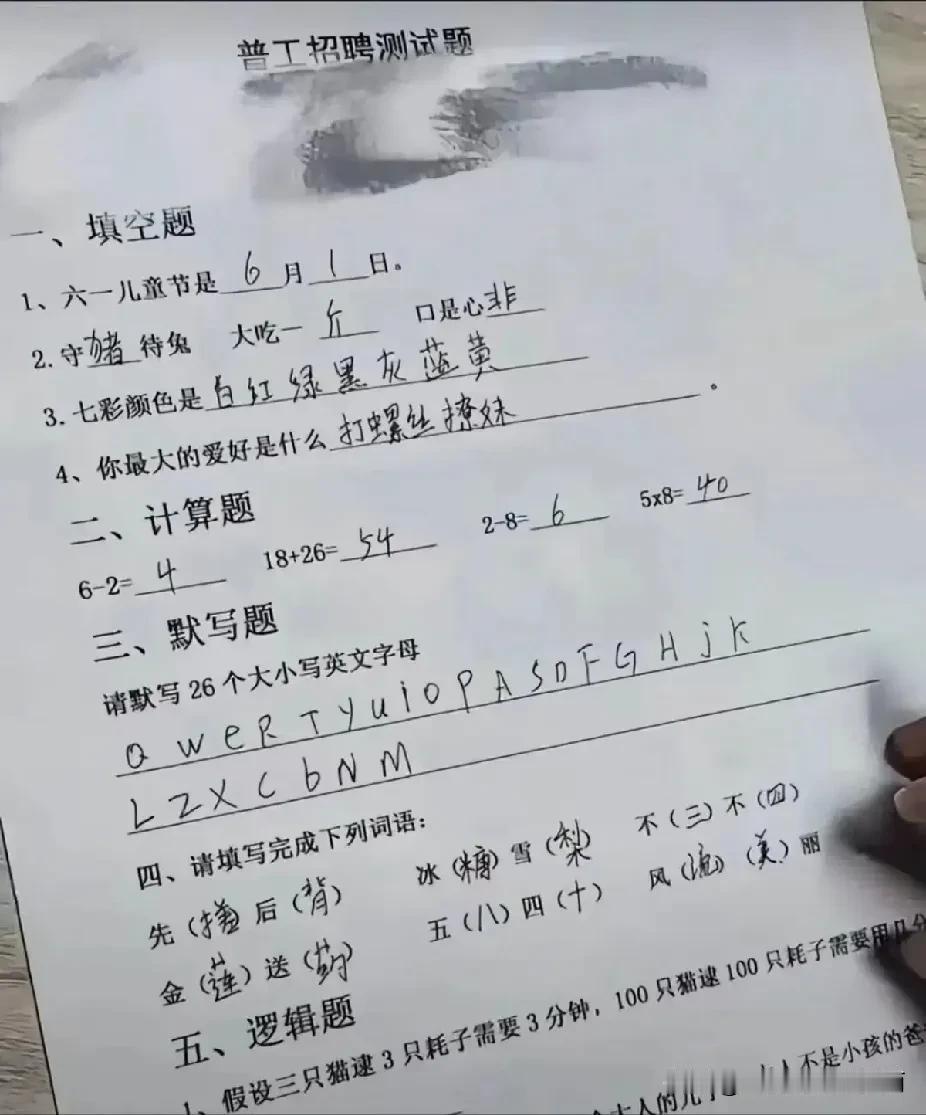 普工招聘测试题
一、填空题
1、六一儿童节是 6 月 1 日。
2.守猪待兔 大吃一斤 口是心非
3.七彩颜色是白红绿黑灰蓝黄
4、你最大的爱好是什么打螺丝撩妹。
二、计算题
6-2=4 18+26=54 2-8=6 5x8=40
三、默写题
请默写26个大小写英文字母
Q w e R T y u i o p A S D F G H j k
L Z X C b N M
四、请填写完成下列词语：
先（）后（背） 冰（糖）雪（梨） 不（三）不（四）
金（莲）送（药） 五（八）四（十） 风（流）（美）丽
五、逻辑题
1、假设三只猫逮3只耗子需要3分钟，100只猫逮100只耗子需要用几分
个大人的儿 人不是小孩的爸